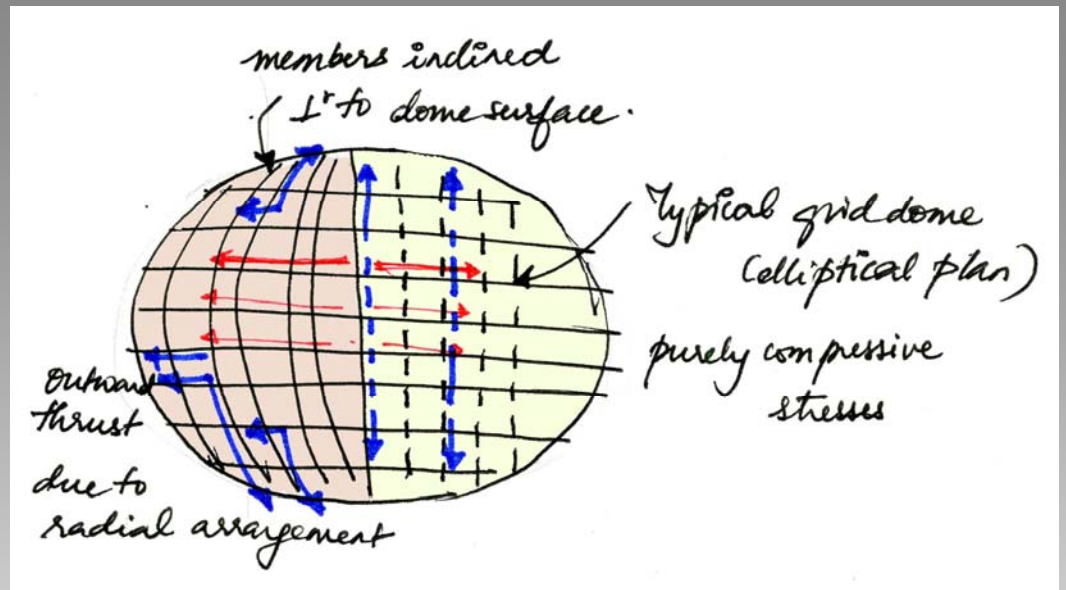 members inclined
⊥r to dome surface.
Typical grid dome
(elliptical plan)
purely compressive
stresses
outward
thrust
due to
radial arrangement